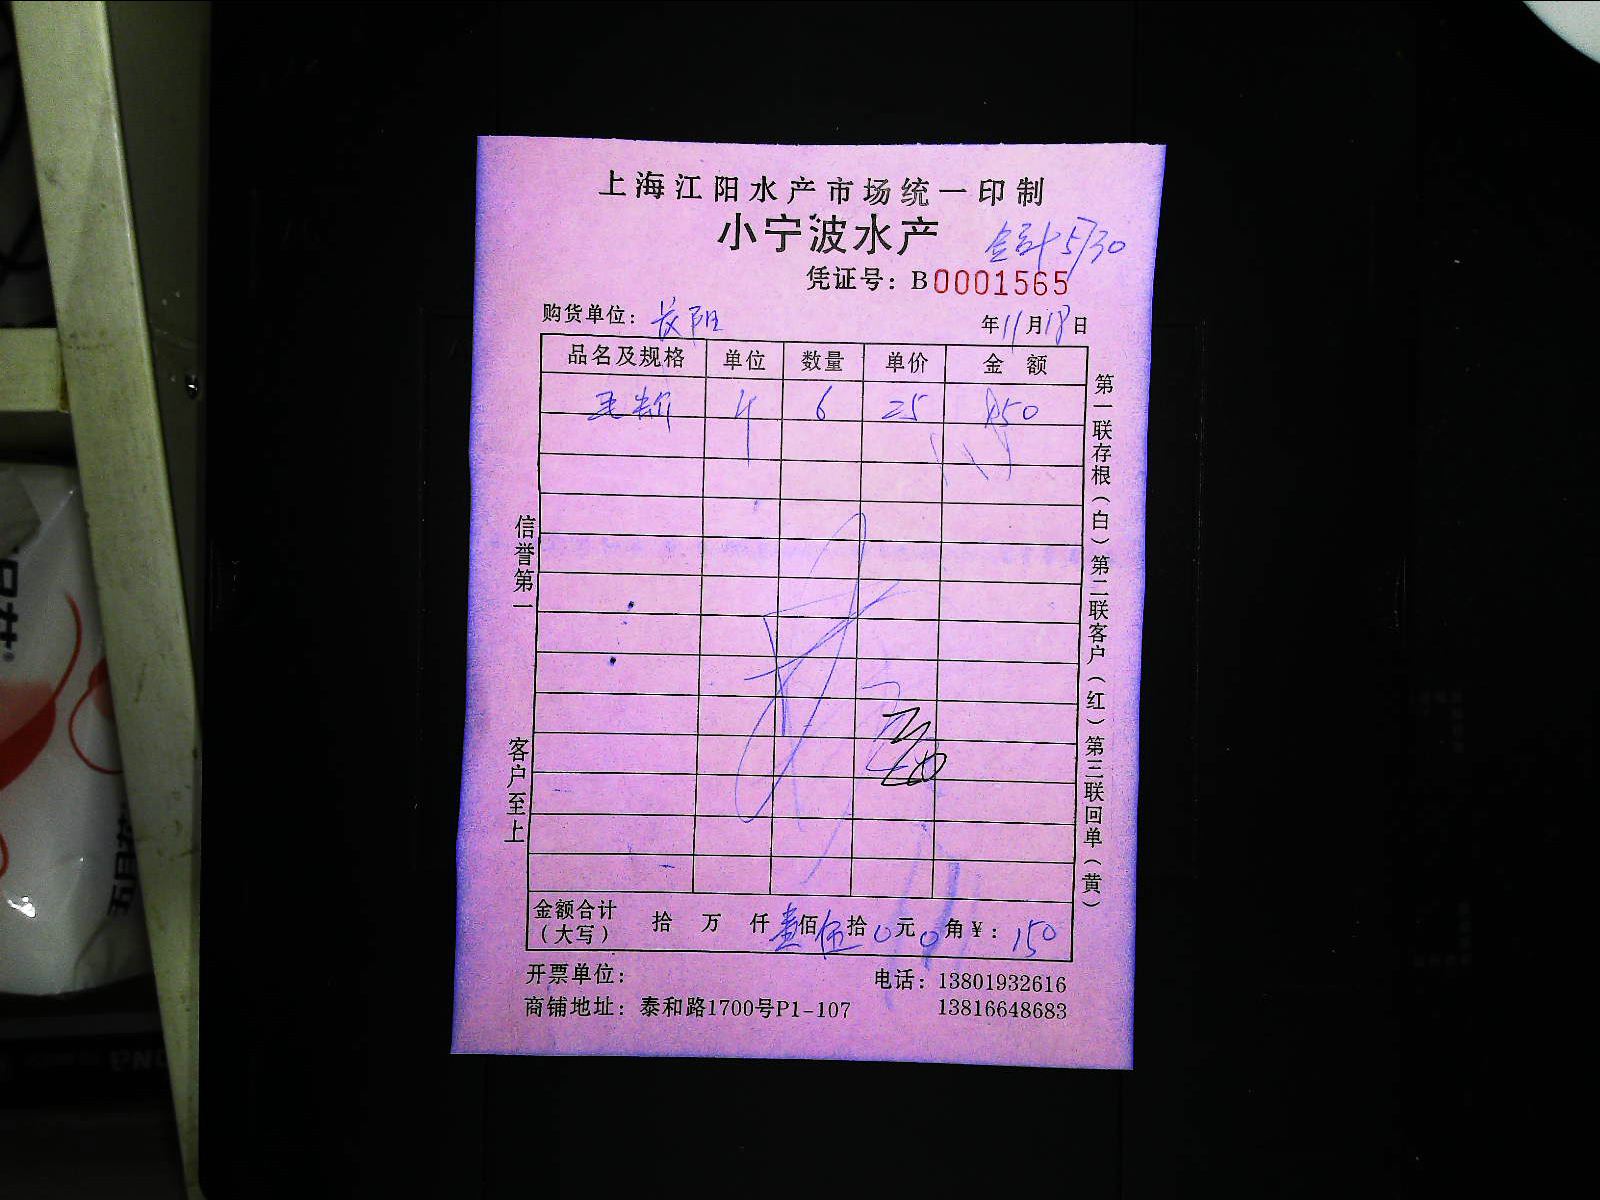 上海江阳水产市场统一印制
小宁波水产
合计5730
凭证号：B0001565
购货单位：长阳
年11月18日
品名及规格 单位 数量 单价 金 额
6 25 150
信誉第一
客户至上
第一联存根（白）第二联客户（红）第三联回单（黄）
金额合计（大写） 拾 万 仟壹佰伍拾0元0角¥：150
开票单位：
电话：13801932616
商铺地址：泰和路1700号P1-107
13816648683